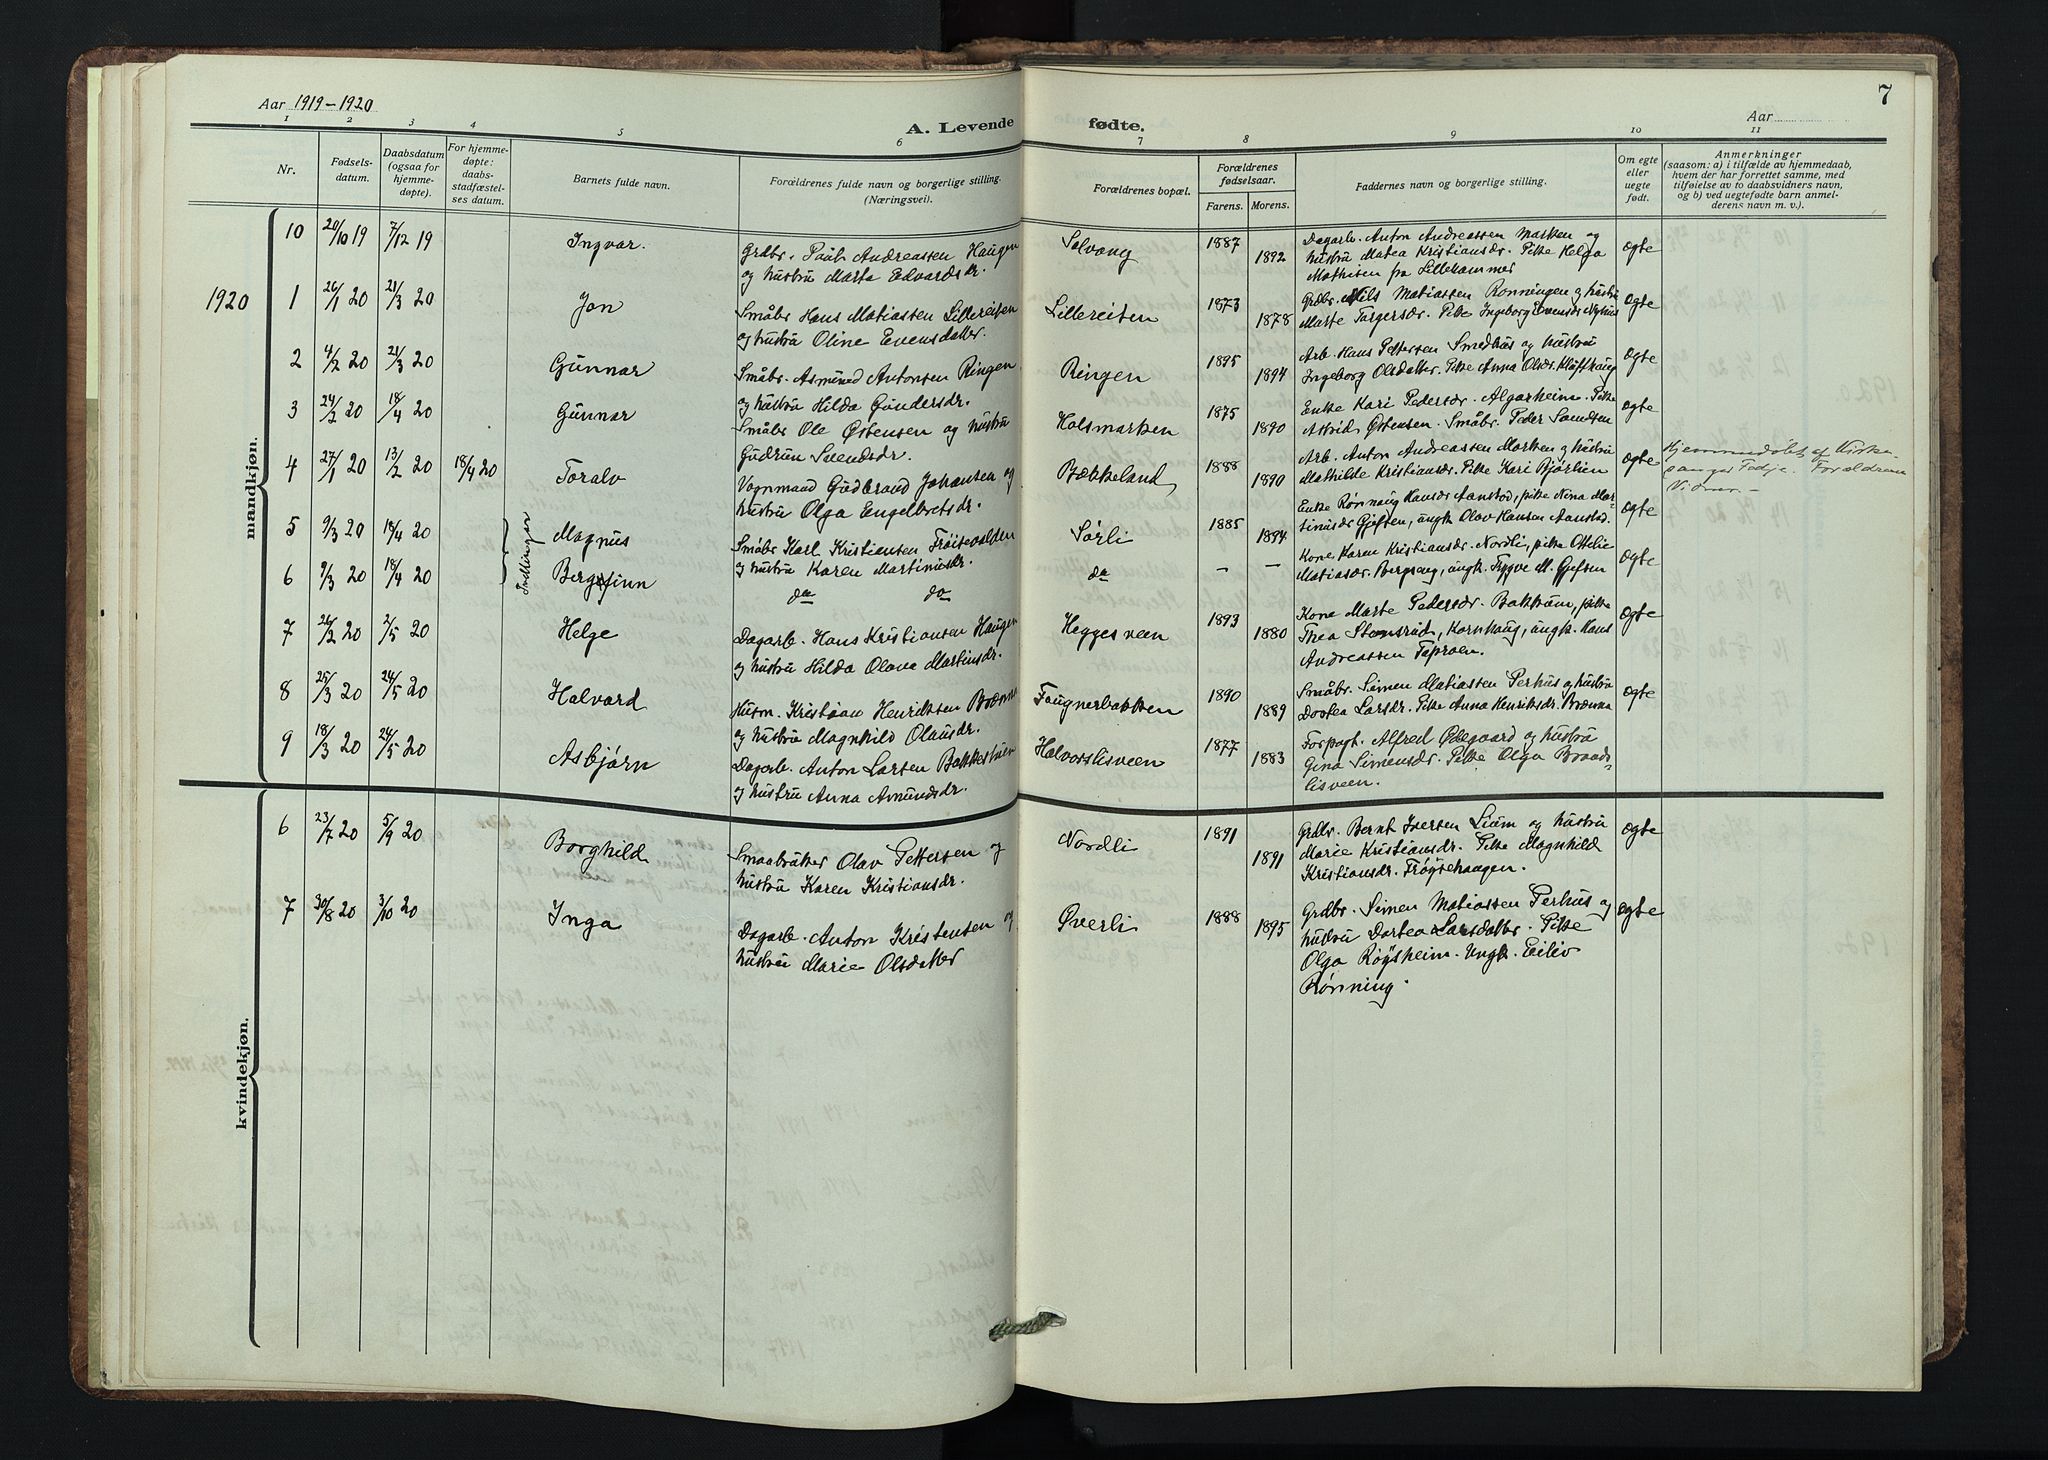 Aar 1919-1920
7
Aar
A. Levende fødte.
1 2 3 4 5 6 7 8 9 10 11
Nr.
Fødsels-
datum.
Daabsdatum
(ogsaa for
hjemme-
døpte).
For hjemme-
døpte:
daabs-
stadfæstel-
ses datum.
Barnets fulde navn.
Forældrenes fulde navn og borgerlige stilling.
(Næringsvei).
Forældrenes bopæl.
Forældrenes
fødselsaar.
Farens. Morens.
Faddernes navn og borgerlige stilling.
Om egte
eller
uegte
født.
Anmerkninger
(saasom: a) i tilfælde av hjemmedaab,
hvem der har forrettet samme, med
tilføielse av to daabsvidners navn,
og b) ved uegtefødte barn anmel-
derens navn m. v.).
mandkjøn.
10 20/10 19 7/12 19 Ingvar.
Grdbr. Paul Andreassen Haugen
og hustru Marta Edvardsdr.
Solvang 1887 1892
Dagarb. Anton Andreassen Marken og
hustru Matea Kristiansdr. Pike Helga
Mathisen fra Lillehammer
ægte
1920
1 26/1 20 21/3 20 Jon
Småbr Hans Matiassen Lillereiten
og hustru Oline Evensdatter.
Lillereiten 1873 1878
Grdbr. Nils Matiassen Rønningen og hustru
Marte Torgersdr. Pike Ingeborg Evensdr Nyhus
ægte
2 4/2 20 21/3 20 Gunnar
Småbr. Asmund Antonsen Ringen
og hustru Hilda Gundersdr.
Ringen 1895 1894
Arb. Hans Pettersen Smedhus og hustru
Ingeborg Olsdatter. Pike Anna Olsdr. Kløffhaug
ægte
3 24/2 20 18/4 20 Gunnar
Småbr Ole Østensen og hustru
Gudrun Svendsdr.
Holsmarken 1875 1890
Enke Kari Pedersdr. Algarheim. Pike
Astrid Østensen. Småbr. Peder Samdsen
ægte
4 27/1 20 13/2 20 18/4 20 Toralv
Vognmand Gudbrand Johansen og
hustru Olga Engelbretsdr.
Bækkeland 1888 1890
Arb. Anton Andreassen Marken og hustru
Mathilde Kristiansdr. Pike Kari Bjørlien
ægte
Hjemmedøbt af Kirke-
sanger Tedje. Forældrene
Vidner.-
Tvillinger
5 9/3 20 18/4 20 Magnus
Småbr Karl Kristiansen Frøisevolden
og hustru Karen Martinusdr.
Sørli 1885 1894
Enke Rønnaug Hansdr Aanstad, pike Nina Mar-
tinusdr Gjefsen, ungk Olav Hansen Aanstad.
ægte
6 9/3 20 18/4 20 Bergfinn
do do
do - -
Kone Karen Kristiansdr. Nordli, pike Ottilie
Matiasdr. Bergseng, ungk. Trygve M. Gjefsen
ægte
7 26/2 20 2/5 20 Helge
Dagarb. Hans Kristiansen Haugen
og hustru Hilda Olava Martinsdr.
Heggesveen 1893 1880
Kona Marte Pedersdr. Bakkum, pike
Thea Stensrud, Kornhaug, ungk. Hans
Andreassen Taproen.
ægte
8 25/3 20 24/5 20 Halvard
Husm. Kristian Henriksen Brænna
og hustru Magnhild Olausdr.
Faugnerbakken 1890 1889
Småbr. Simen Matiassen Perhus og hustru
Dortea Larsdr. Pike Anna Henriksdr. Brænna
ægte
9 18/3 20 24/5 20 Asbjørn
Dagarb. Anton Larsen Bakkestuen
og hustru Anna Amundsdr.
Halvorslisveen 1877 1883
Forpagt. Alfred Ødegaard og hustru
Gina Simensdr. Pike Olga Braads-
lisveen.
ægte
kvindekjøn.
6 23/7 20 5/9 20 Borghild
Smaabruker Olav Pettersen og
hustru Karen Kristiansdr.
Nordli 1891 1891
Grdbr. Bernt Iversen Lium og hustru
Marie Kristiansdr. Pike Magnhild
Kristiansdr. Frøysehaugen.
ægte
7 30/8 20 3/10 20 Inga
Dagarb. Anton Kristensen og
hustru Marie Olsdatter
Øverli 1888 1895
Grdbr. Simen Matiassen Perhus og
hustru Dortea Larsdatter. Pike
Olga Røysheim. Ungk. Eiliv
Rønning.
ægte